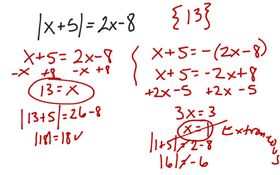 |x+5| = 2x-8
{13}
x+5 = 2x-8
-x +8 -x +8
13 = x
|13+5| = 26-8
|18| = 18 ✓
x+5 = -(2x-8)
x+5 = -2x+8
+2x -5 +2x -5
3x = 3
x = 1
Extraneous
|1+5| = 2-8
|6| ≠ -6